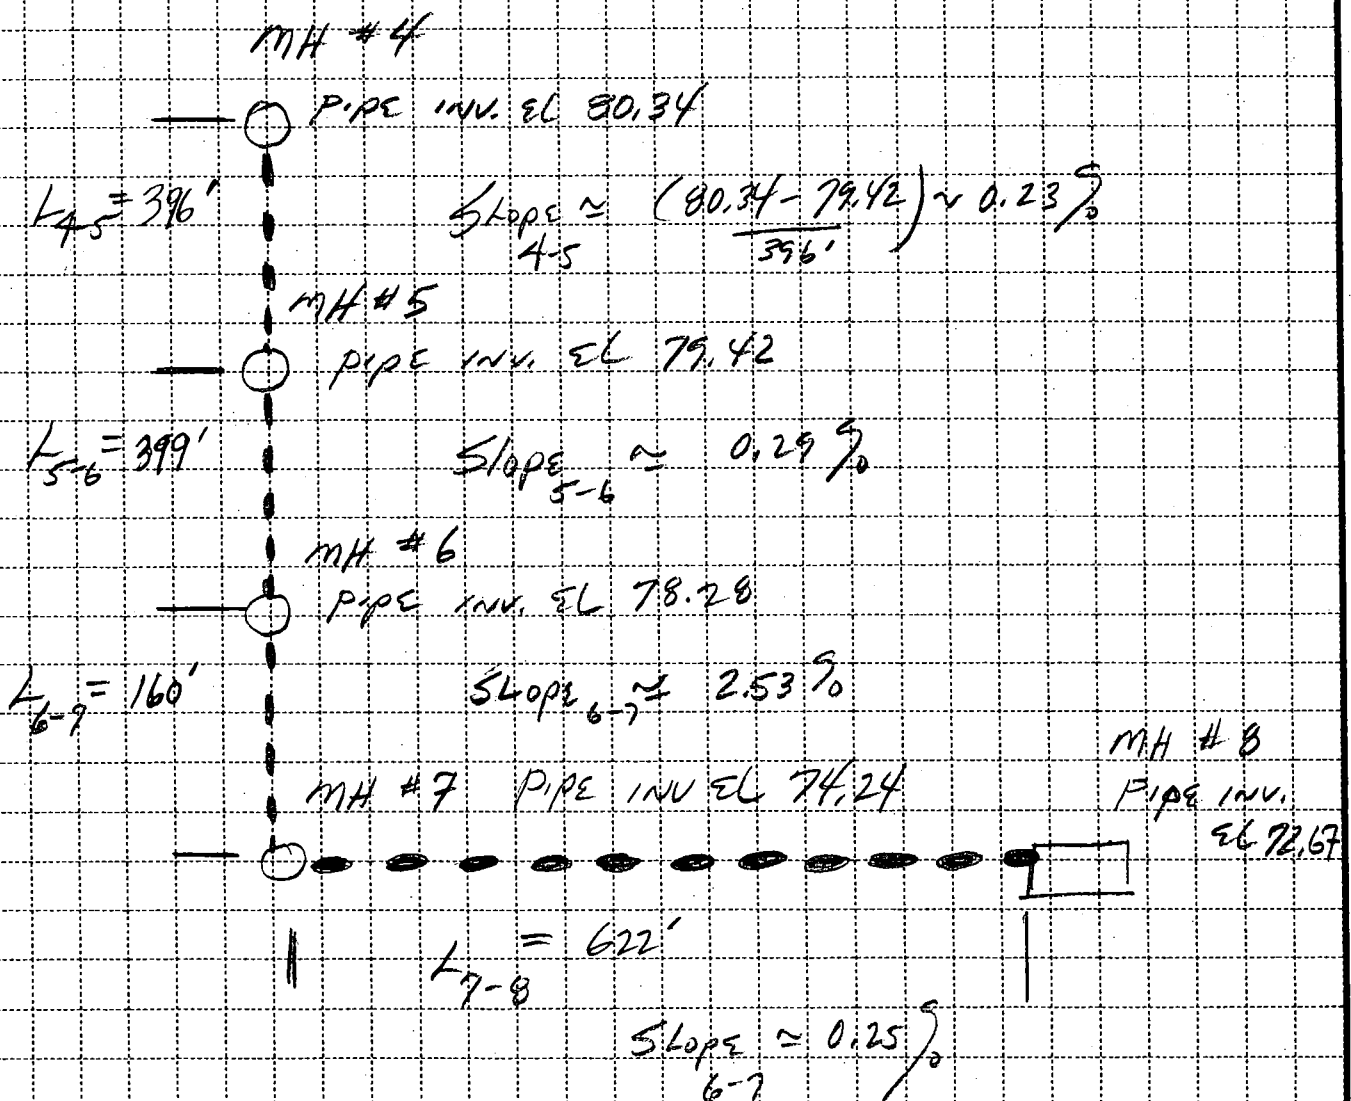 MH #4
PIPE INV. EL 80.34
L4-5 = 396'
SLOPE 4-5 ≃ (80.34 - 79.42) / 396' ~ 0.23 %
MH #5
PIPE INV. EL 79.42
L5-6 = 399'
Slope 5-6 ≃ 0.29 %
MH #6
PIPE INV. EL 78.28
L6-7 = 160'
SLOPE 6-7 ≃ 2.53 %
MH #8
PIPE INV.
EL 72.67
MH #7 PIPE INV EL 74.24
L7-8 = 622'
SLOPE 6-7 ≃ 0.25 %